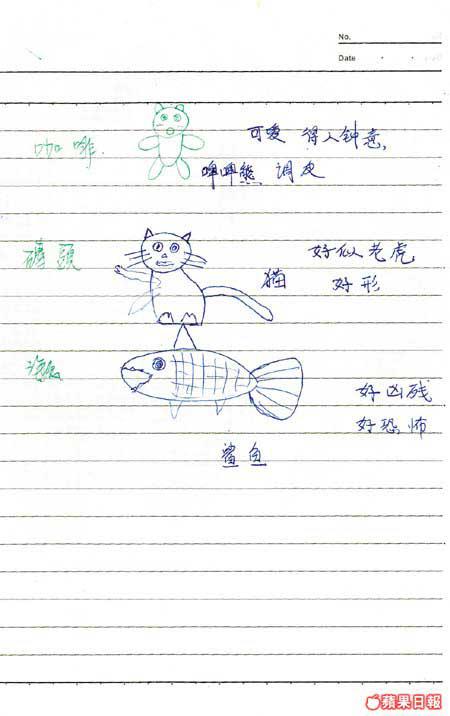 No.
Date
咖啡. 可爱 得人钟意,
啤啤熊 调皮
磚頭 好似老虎
猫 好形
好凶残
好恐怖
鲨鱼
蘋果日報